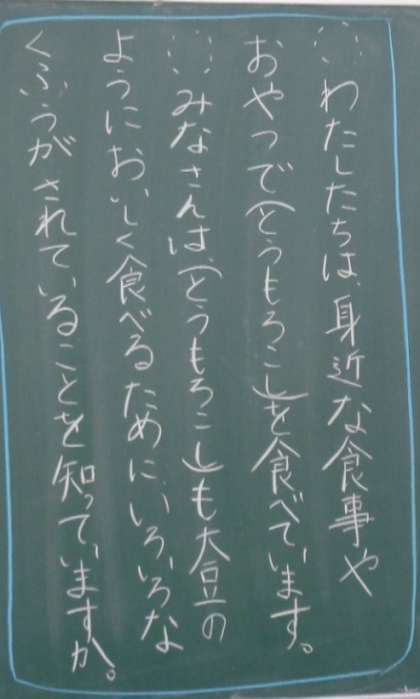 わたしたちは、身近な食事や
おやつで(とうもろこし)を食べています。
みなさんは、(とうもろこし)も大豆の
ようにおいしく食べるために、いろいろな
くふうがされていることを知っていますか。